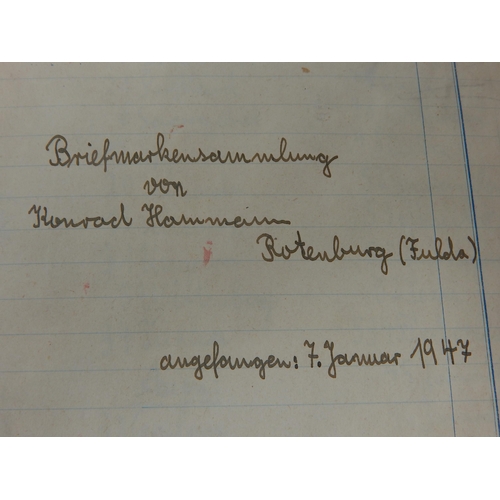 Briefmarkensammlung
von
Konrad Hammann
Rotenburg (Fulda)
angefangen: 7. Januar 1947